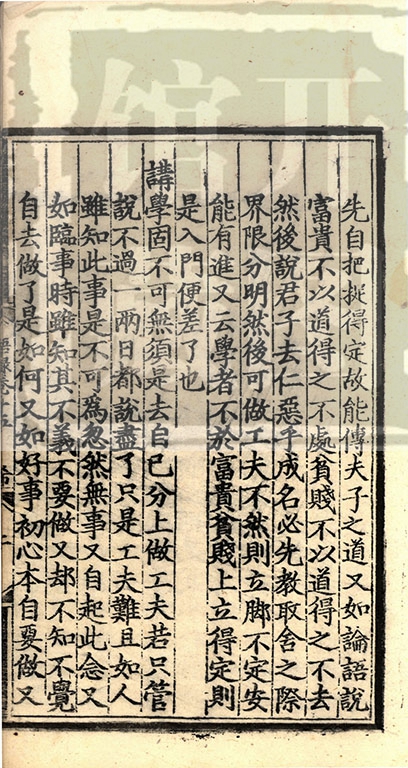 先自把捉得定故能傳夫子之道又如論語說
富貴不以道得之不處貧賤不以道得之不去
然後說君子去仁惡乎成名必先教取舍之際
界限分明然後可做工夫不然則立脚不定安
能有進又云學者不於富貴貧賤上立得定則
是入門便差了也
講學固不可無須是去自己分上做工夫若只管
說不過一兩日都說盡了只是工夫難且如人
雖知此事是不可爲忽然無事又自起此念又
如臨事時雖知其不義不要做又却不知不覺
自去做了是如何又如好事初心本自要做又